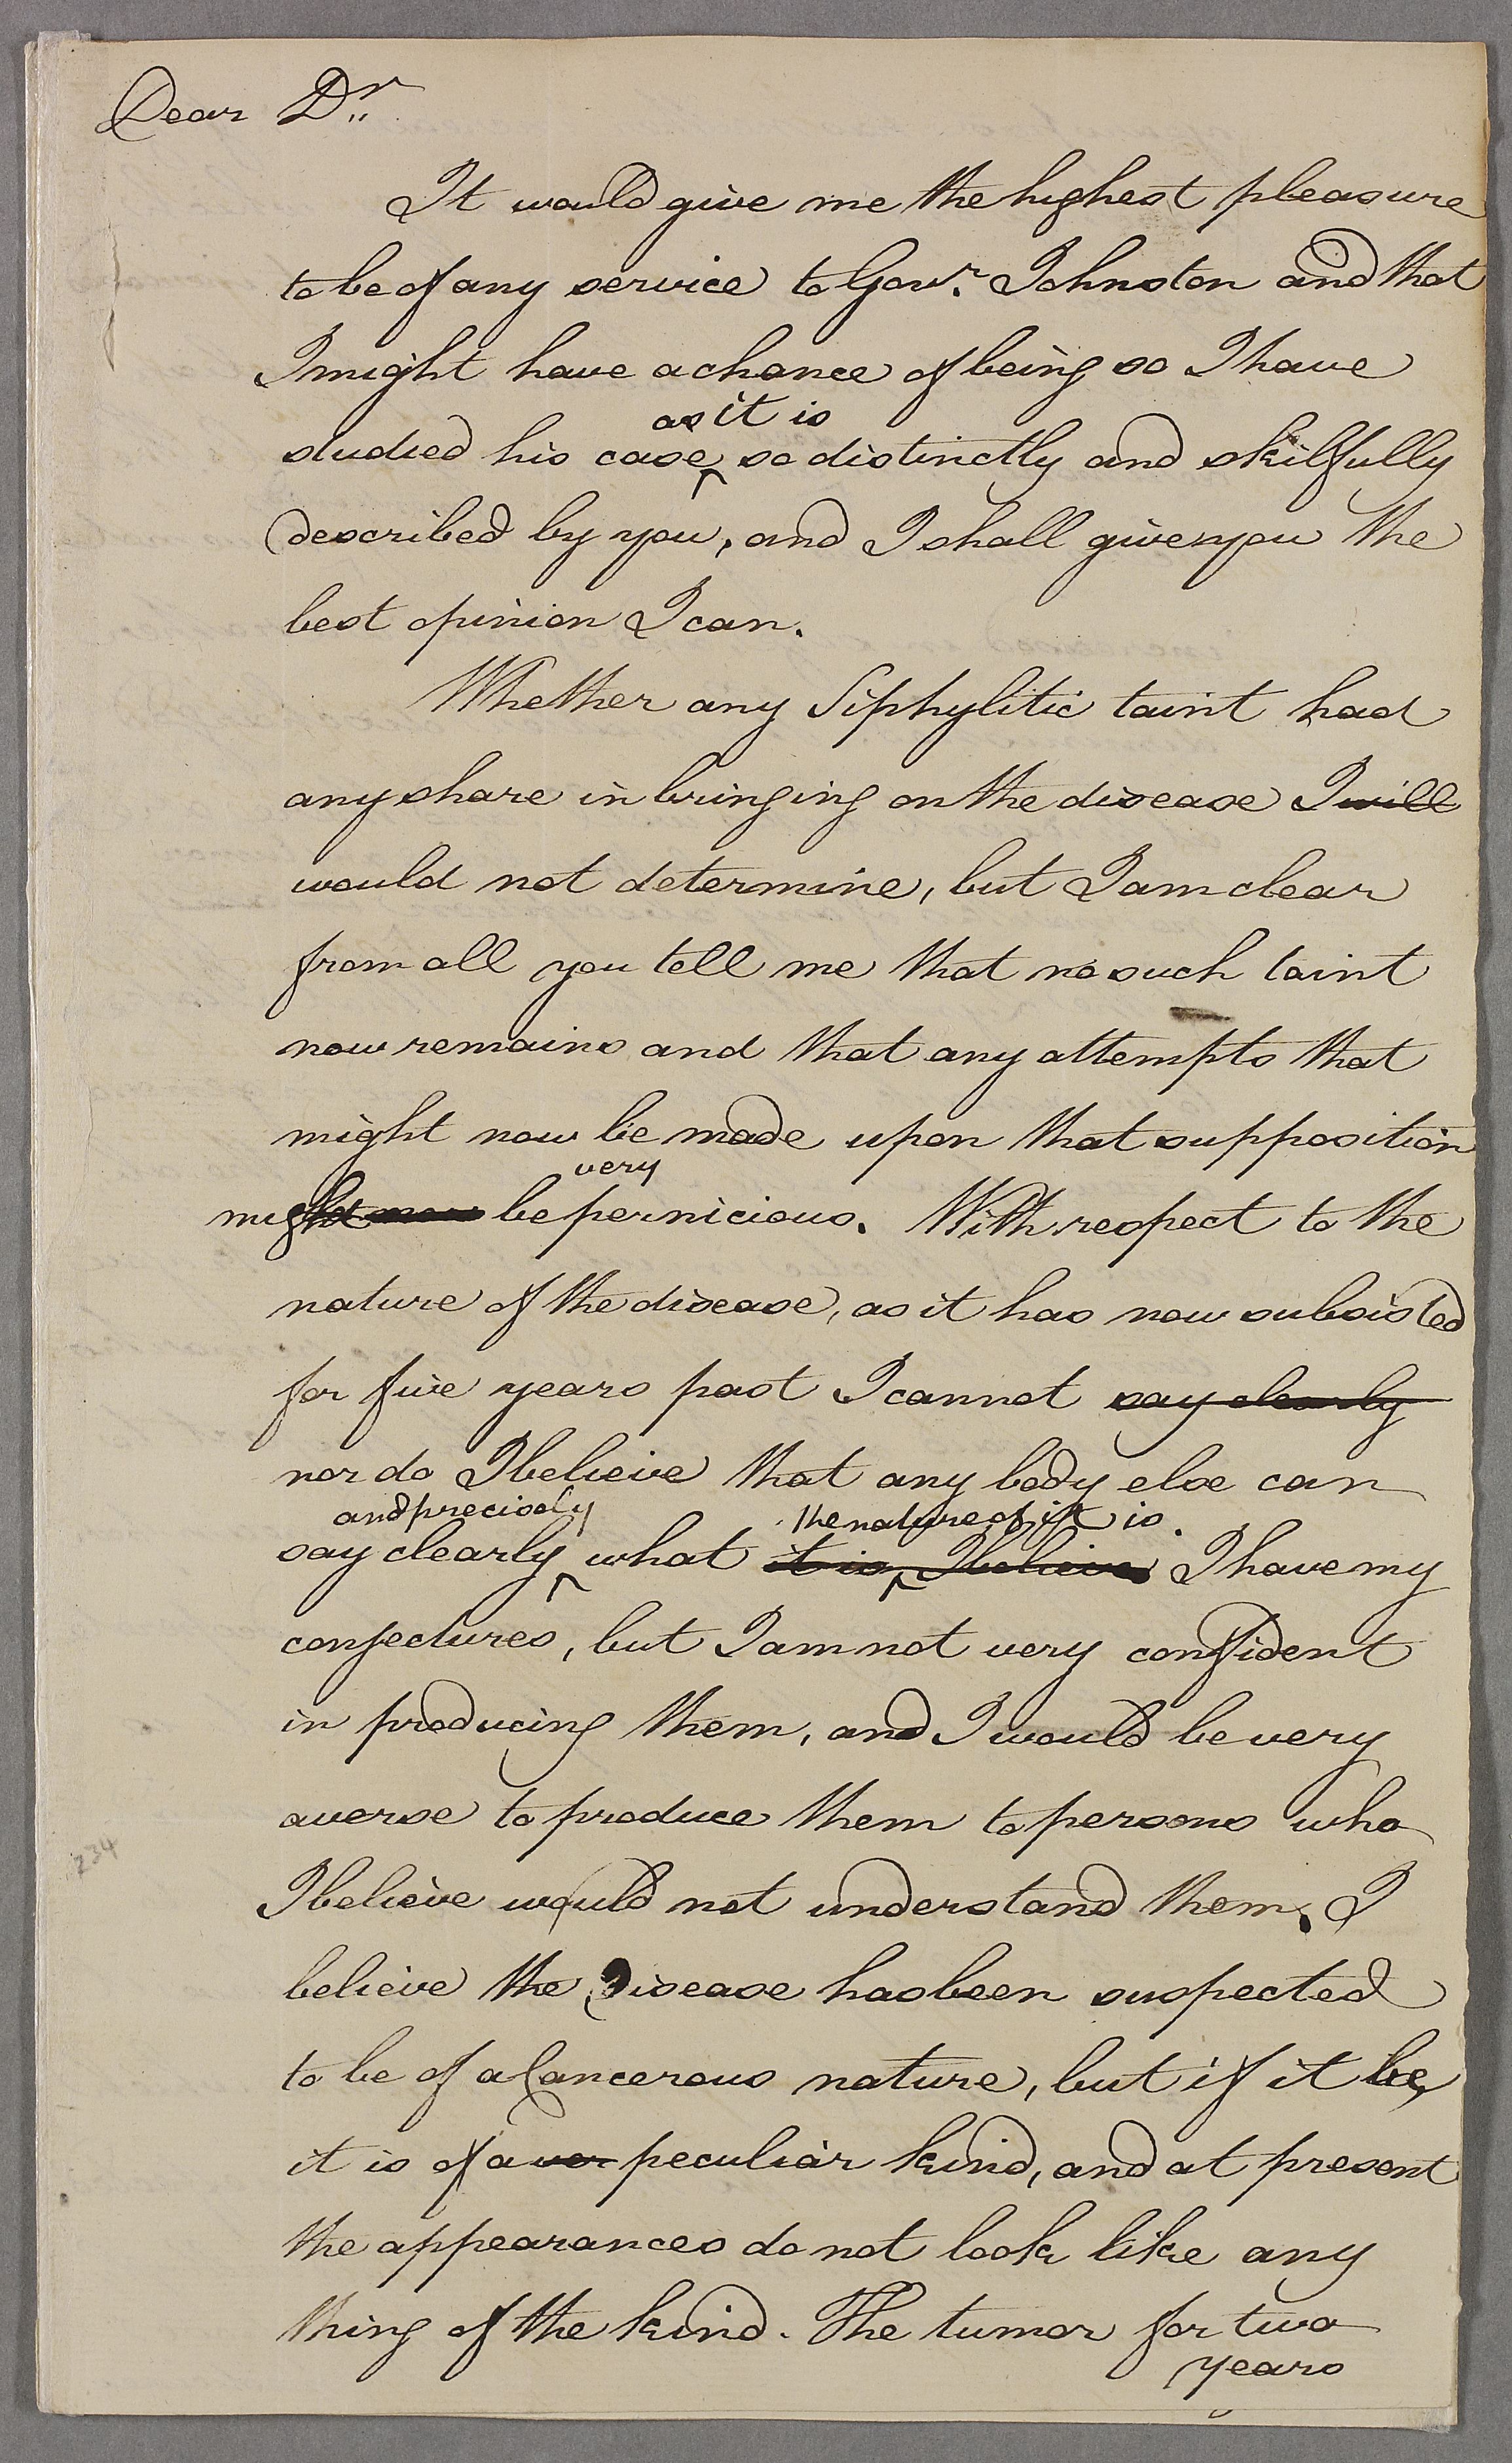 Dear Dr.
It would give me the highest pleasure
to be of any service to Govr. Johnston and that
I might have a chance of being so I have
as it is
studied his case so distinctly and skilfully
described by you, and I shall give you the
best opinion I can.
Whether any Siphylitic taint had
any share in bringing on the disease I will
would not determine, but I am clear
from all you tell me that no such taint
now remains and that any attempts that
might now be made upon that supposition
very
might now be pernicious. With respect to the
nature of the disease, as it has now subsisted
for five years past I cannot say clearly
nor do I believe that any body else can
and precisely the nature of it is.
say clearly what it is, I believe I have my
conjectures, but I am not very confident
in producing them, and I would be very
averse to produce them to persons who
I believe would not understand them. I
believe the Disease has been suspected
to be of a Cancerous nature, but if it be,
it is of a ver peculiar kind, and at present
the appearances do not look like any
thing of the kind. The tumor for two
years
234